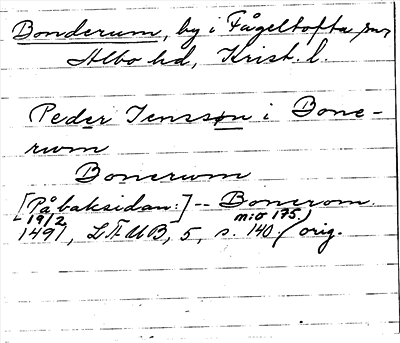 Bonderum, by i Fågeltofta sn,
Albo hd, Krist. l.
Peder Jenssøn i Bone-
rum
Bonerum
[På baksidan:] -- Bonerom.
19/2 m:o 175.)
1491, LÆUB, 5, s. 140. (orig.